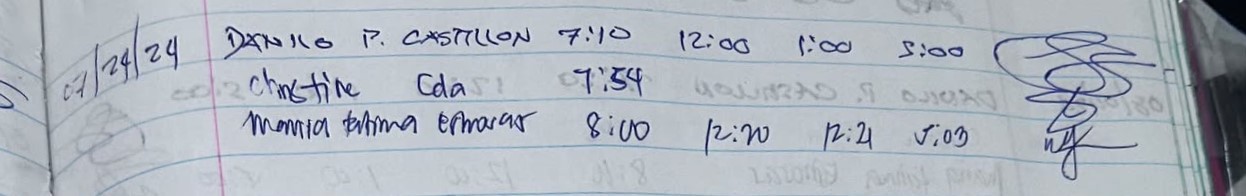 07/24/24 DANILO P. CASTILLON 7:10 12:00 1:00 5:00
Christine Cda 7:54
Fatima 8:00 12:20 12:21 5:03